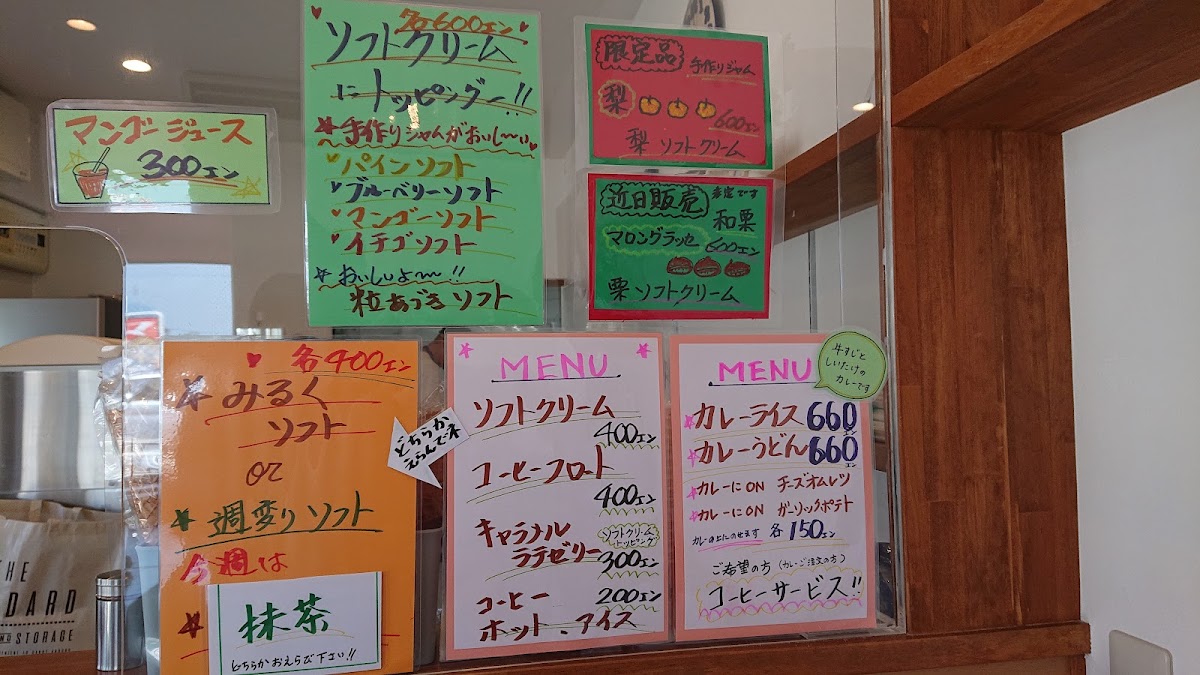 マンゴージュース
300エン
各600エン
ソフトクリーム
にトッピングー!!
手作りジャムがおいし〜い
パインソフト
ブルーベリーソフト
マンゴーソフト
イチゴソフト
おいしいよ〜〜!!
粒あづきソフト
限定品
手作りジャム
梨
600エン
梨ソフトクリーム
近日販売
予定です
和栗
マロングラッセ
600エン
栗ソフトクリーム
各400エン
みるく
ソフト
or
週変りソフト
今週は
抹茶
どちらかおえらび下さい!!
どちらか
えらんでネ
MENU
ソフトクリーム
400エン
コーヒーフロート
400エン
キャラメル
ラテゼリー
ソフトクリーム
トッピング
300エン
コーヒー
200エン
ホット、アイス
MENU
牛すじと
しいたけの
カレーです
カレーライス 660エン
カレーうどん 660エン
カレーにON チーズオムレツ
カレーにON ガーリックポテト
カレーの上にのせます 各150エン
ご希望の方(カレーご注文の方)
コーヒーサービス!!
THE
DARD
STORAGE